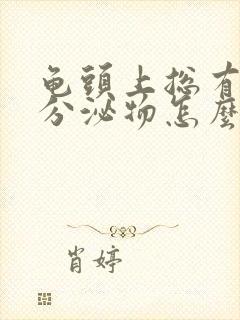 龟頭上総有
分泌物怎麼
肖婷